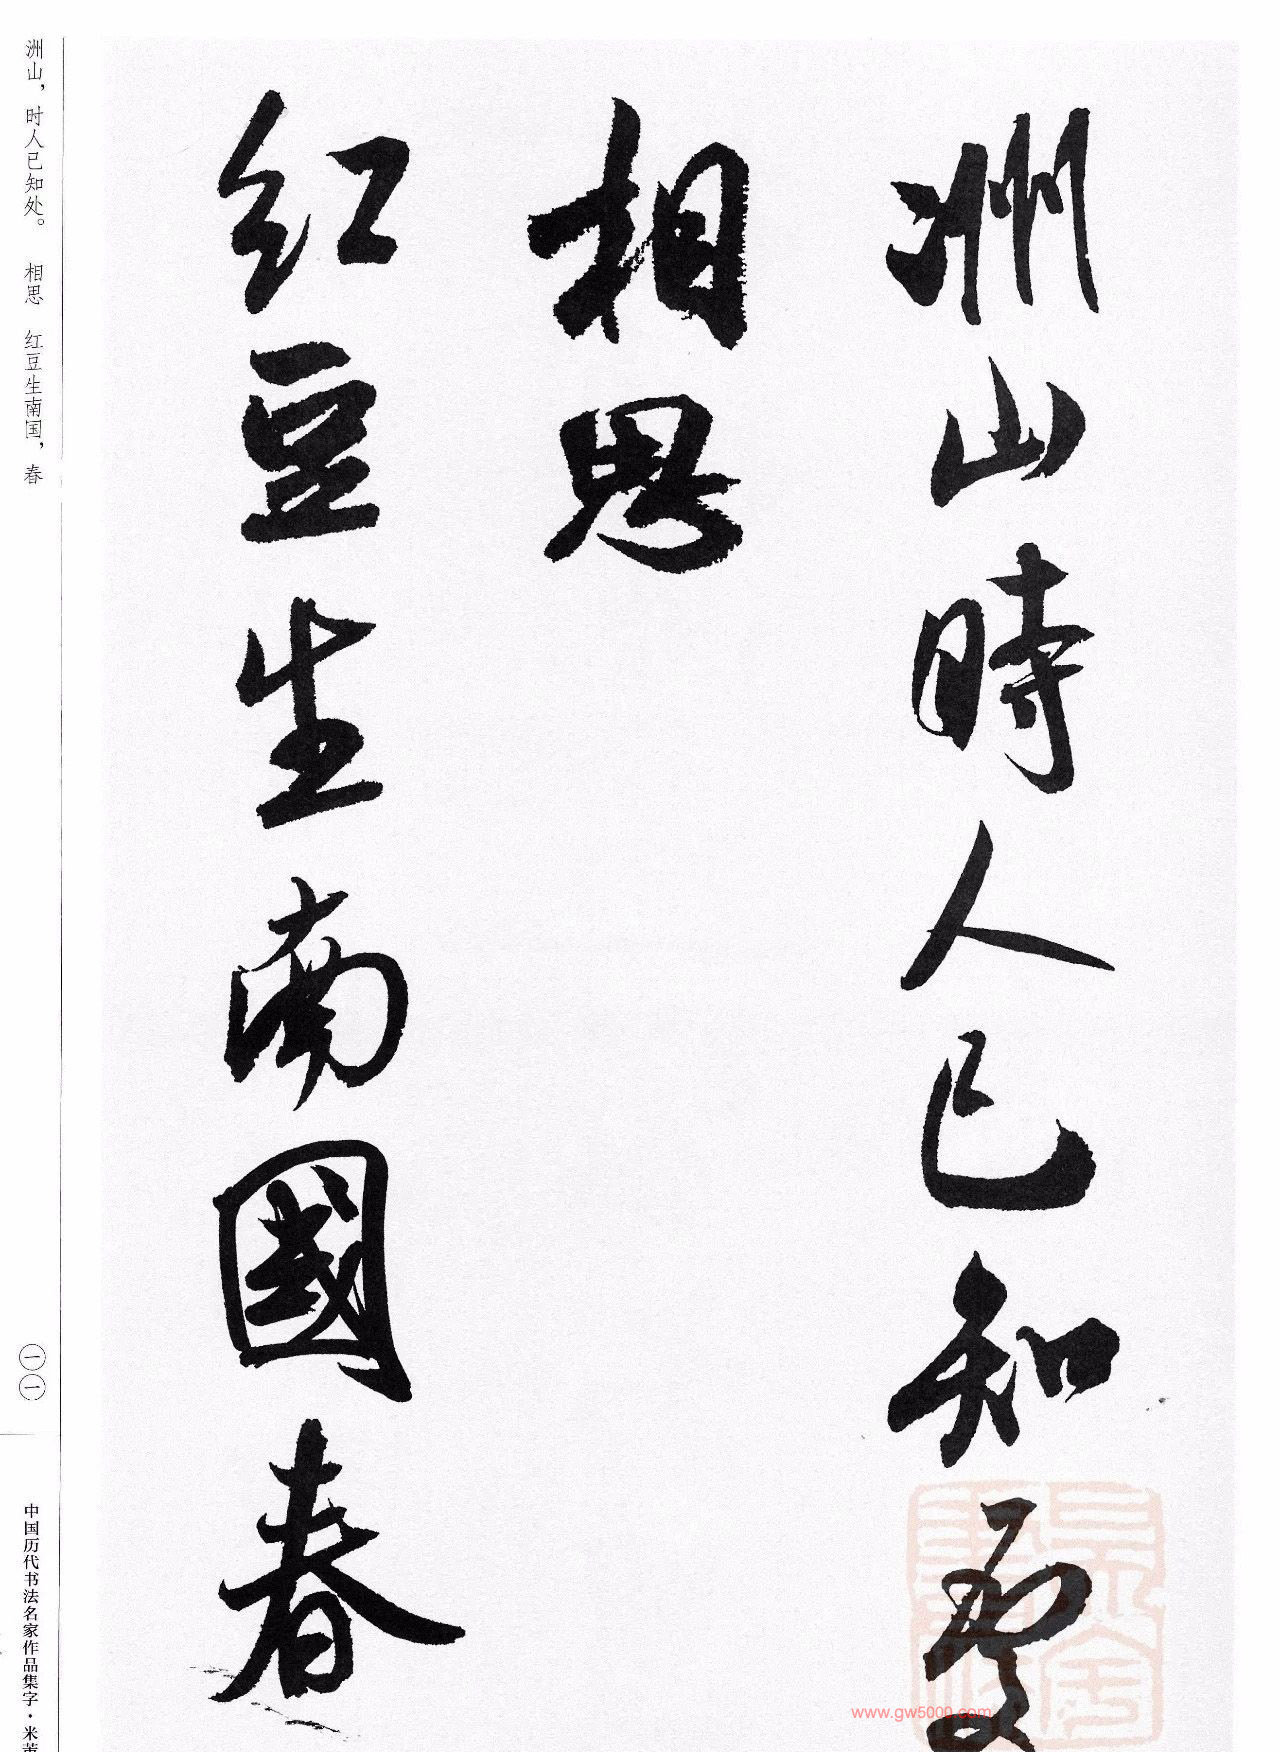 洲山時人已知處
相思
红豆生南國春
洲山，时人已知处。 相思 红豆生南国，春
一一
中国历代书法名家作品集字·米芾
www.gw5000.com